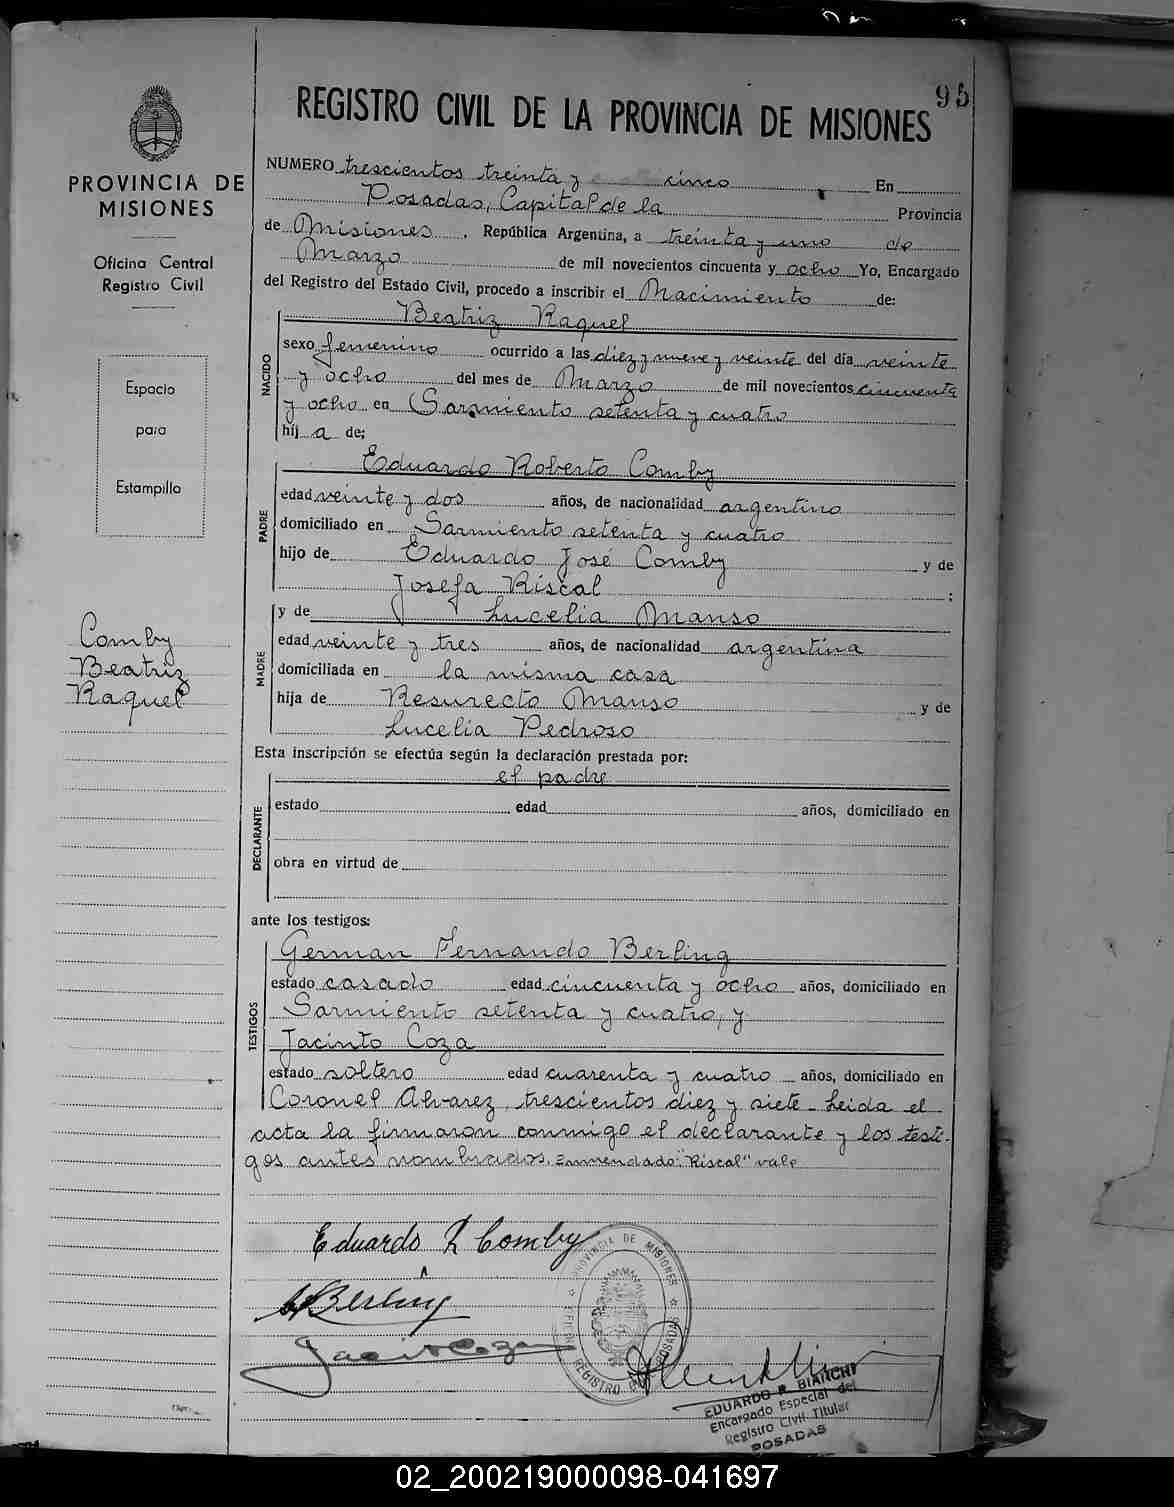 95
REGISTRO CIVIL DE LA PROVINCIA DE MISIONES
PROVINCIA DE
MISIONES
Oficina Central
Registro Civil
Espacio
para
Estampilla
Comby
Beatriz
Raquel
NUMERO trescientos treinta y cinco En
Posadas, Capital de la Provincia
de Misiones. República Argentina, a treinta y uno de
Marzo de mil novecientos cincuenta y ocho Yo, Encargado
del Registro del Estado Civil, procedo a inscribir el Nacimiento de:
NACIDO
Beatriz Raquel
sexo femenino ocurrido a las diez y nueve y veinte del día veinte
y ocho del mes de Marzo de mil novecientos cincuenta
y ocho en Sarmiento setenta y cuatro
hij a de:
PADRE
Eduardo Roberto Comby
edad veinte y dos años, de nacionalidad argentino
domiciliado en Sarmiento setenta y cuatro
hijo de Eduardo José Comby y de
Josefa Riscal ;
MADRE
y de Lucelia Manso
edad veinte y tres años, de nacionalidad argentina
domiciliada en la misma casa
hija de Resurecto Manso y de
Lucelia Pedroso
Esta inscripción se efectúa según la declaración prestada por:
DECLARANTE
el padre
estado edad años, domiciliado en
obra en virtud de
ante los testigos:
TESTIGOS
German Fernando Berling
estado casado edad cincuenta y ocho años, domiciliado en
Sarmiento setenta y cuatro, y
Jacinto Coza
estado soltero edad cuarenta y cuatro años, domiciliado en
Coronel Alvarez trescientos diez y siete - Leida el
acta la firmaron conmigo el declarante y los testi-
gos antes nombrados. Enmendado: "Riscal" vale
Eduardo R Comby
Berling
Jacinto Coza
PROVINCIA DE MISIONES
REGISTRO POSADAS
EDUARDO R. BIANCHI
Encargado Especial del
Registro Civil Titular
POSADAS
02_200219000098-041697